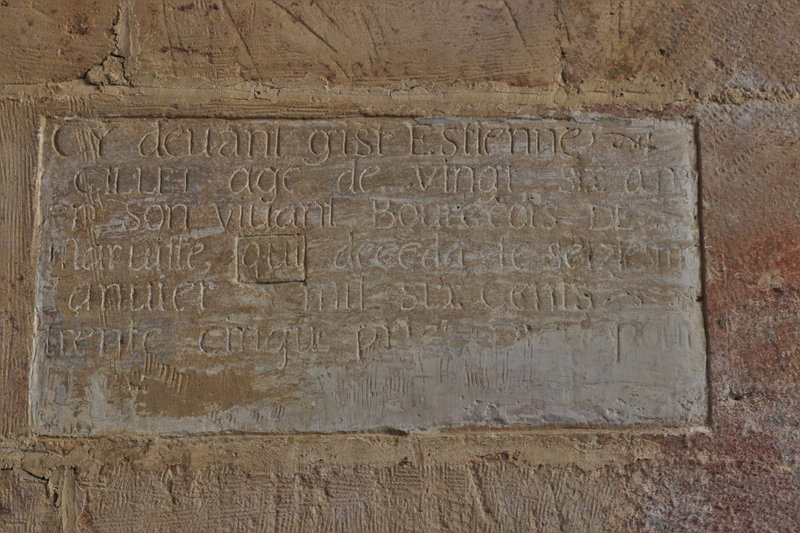 CY deuant gist Estienne
GILLET age de vingt six ans
en son viuant Bourgeois DE
Maruille, qui deceda le seiziem
Ianuier mil six Cents
trente cinque pries Dieu pour